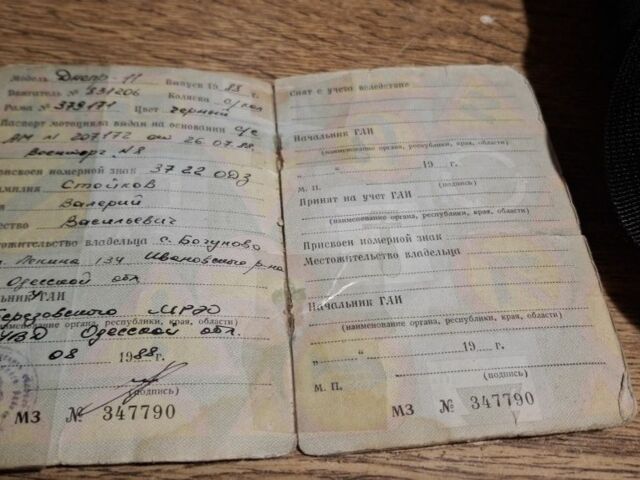 Модель Днепр-11 Выпуск 1988 г.
Двигатель № 831206 Коляска б/кол
Рама № 379171 Цвет черный
Паспорт мотоцикла выдан на основании с/с
ДМ № 207172 от 26.07.88.
Военторг №8
присвоен номерной знак 3722 ОДЗ
амилия Стойков
я Валерий
ество Васильевич
стожительство владельца с. Богуново
Ленина 134 Ивановского р-на
Одесской обл
ьник ГАИ
МРЭО
именование органа, республики, края, области)
УВД Одесской обл.
08 1988 г.
(подпись)
МЗ № 347790
Снят с учета вследствие
Начальник ГАИ
(наименование органа, республики, края, области)
„ “ 19 г.
М. П. (подпись)
Принят на учет ГАИ
(наименование органа, республики, края, области)
Присвоен номерной знак
Местожительство владельца
Начальник ГАИ
(наименование органа, республики, края, области)
„ “ 19 г.
(подпись)
М. П.
МЗ № 347790